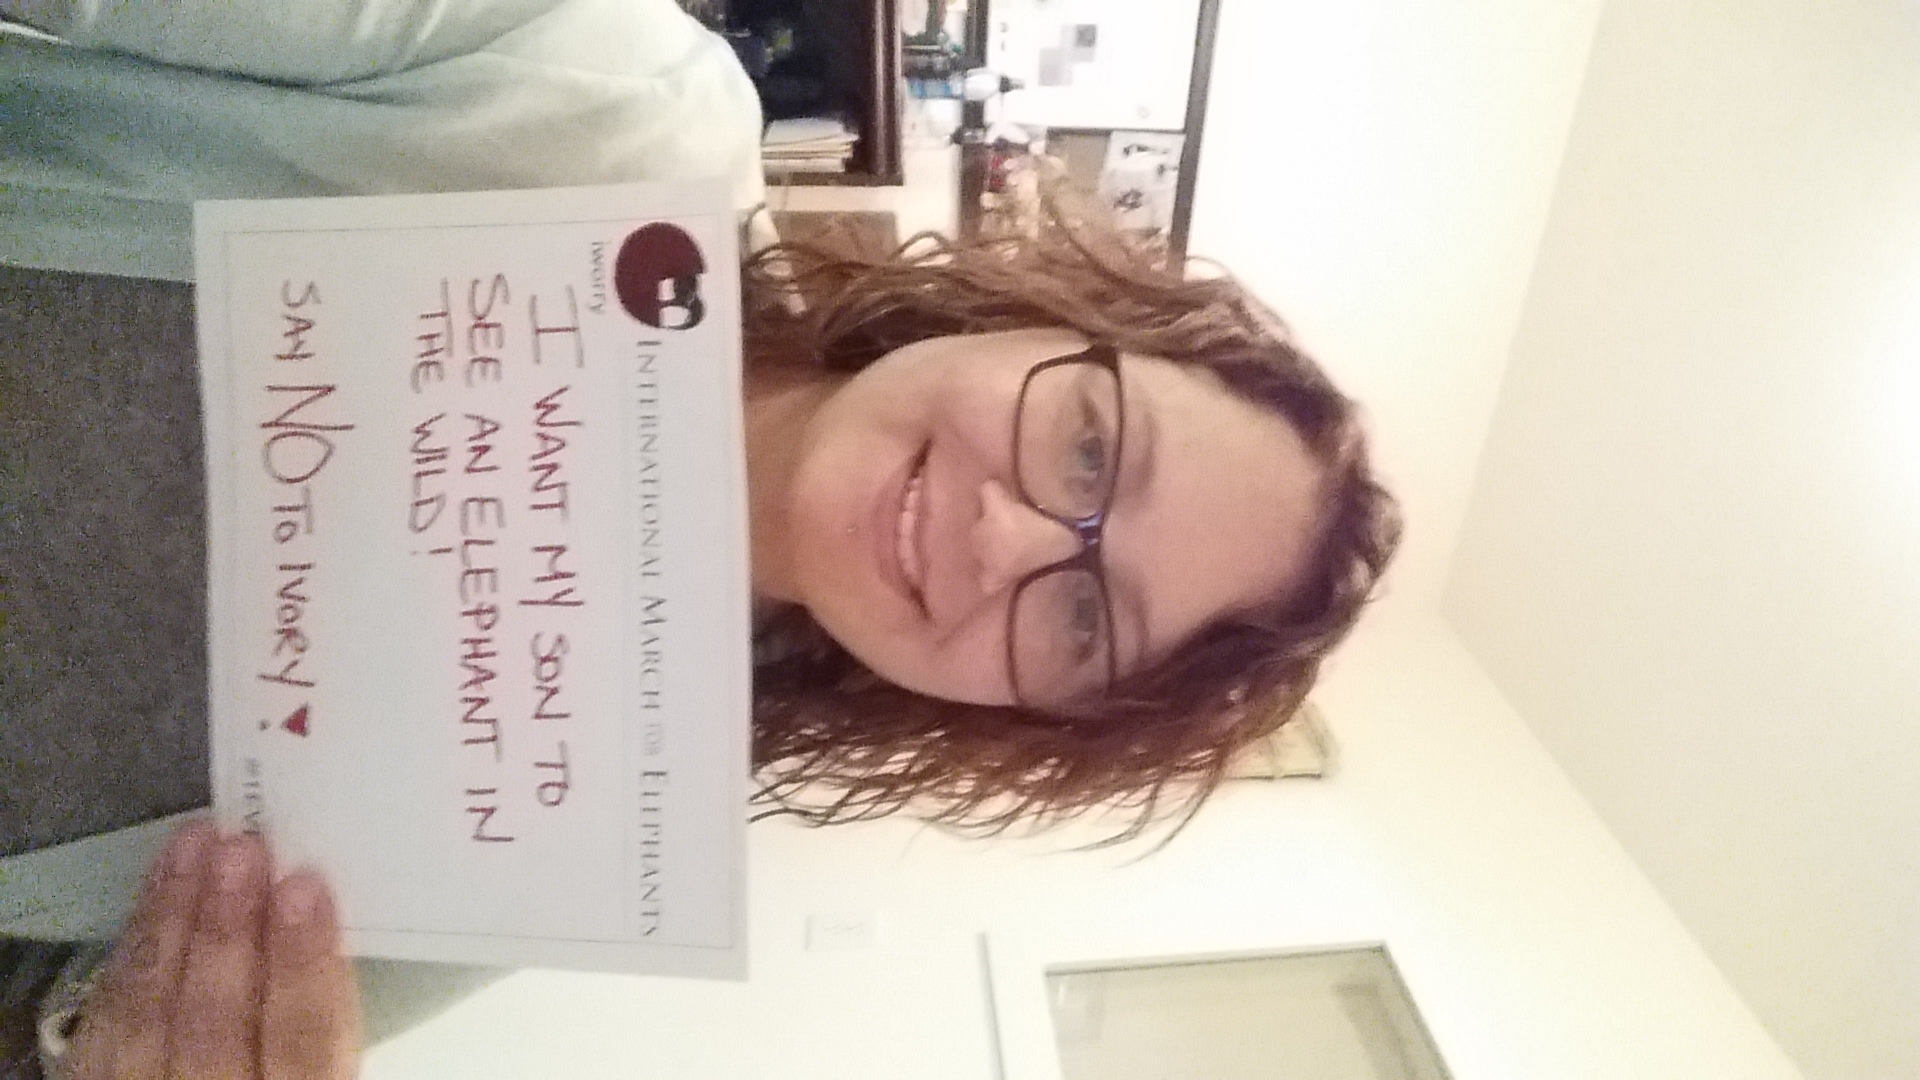 INTERNATIONAL MARCH FOR ELEPHANTS
iworry
I WANT MY SON TO
SEE AN ELEPHANT IN
THE WILD!
SAY NO TO IVORY